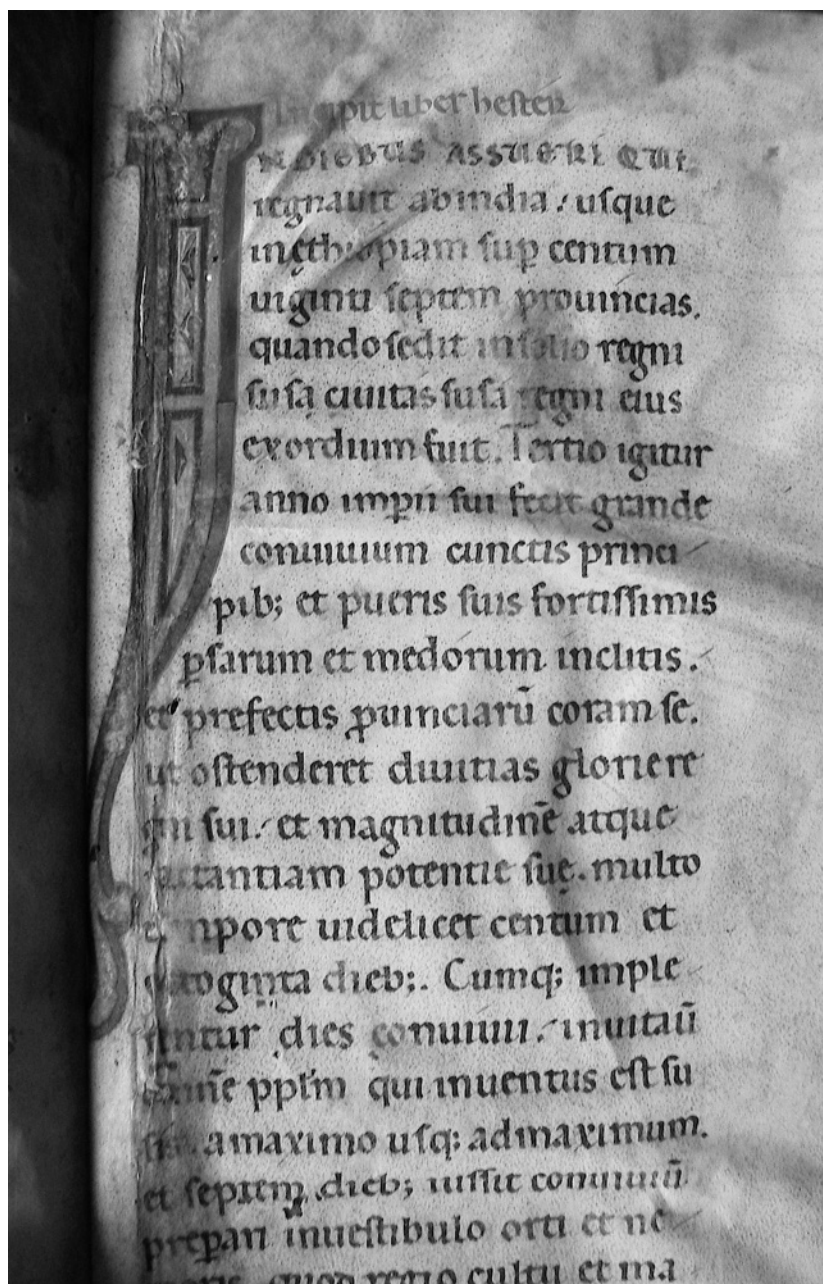 Incipit liber hester
IN DIEBUS ASSUERI QUI
regnauit ab india / usque
in ęthiopiam sup̄ centum
uiginti septem prouincias.
quando sedit in solio regni
susa ciuitas susa regni eius
exordium fuit. Tertio igitur
anno imp̄ii sui fecit grande
conuiuium cunctis princi
pib; et pueris suis fortissimis
p̄sarum et medorum inclitis.
et prefectis ꝓuinciarū coram se.
ut ostenderet diuitias glorie re
gni sui. et magnitudinē atque
iactantiam potentie suę. multo
tempore uidelicet centum et
octoginta dieb;. Cumq; imple
rentur dies conuiuii. inuitaū
omnē pplm̄ qui inuentus est su
sis. a maximo usq; ad maximum.
et septem dieb; iussit conuiuiū
prep̄ari in uestibulo orti et ne
quod regio cultu et ma